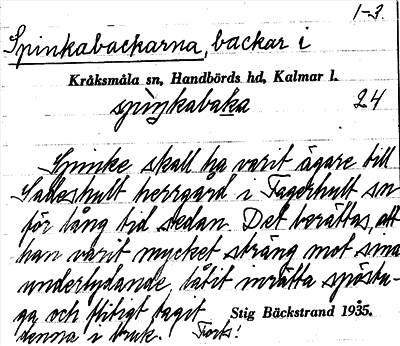 1-3.
Spinkabackarna, backar i
Kråksmåla sn, Handbörds hd, Kalmar l.
spiŋkabaka 24
Spinke skall ha varit ägare till
Sadeshult herrgård i Fagerhult sn
för lång tid sedan. Det berättas, att
han varit mycket sträng mot sina
underlydande, låtit inrätta spöstu-
ga och flitigt tagit
denna i bruk. Forts!
Stig Bäckstrand 1935.